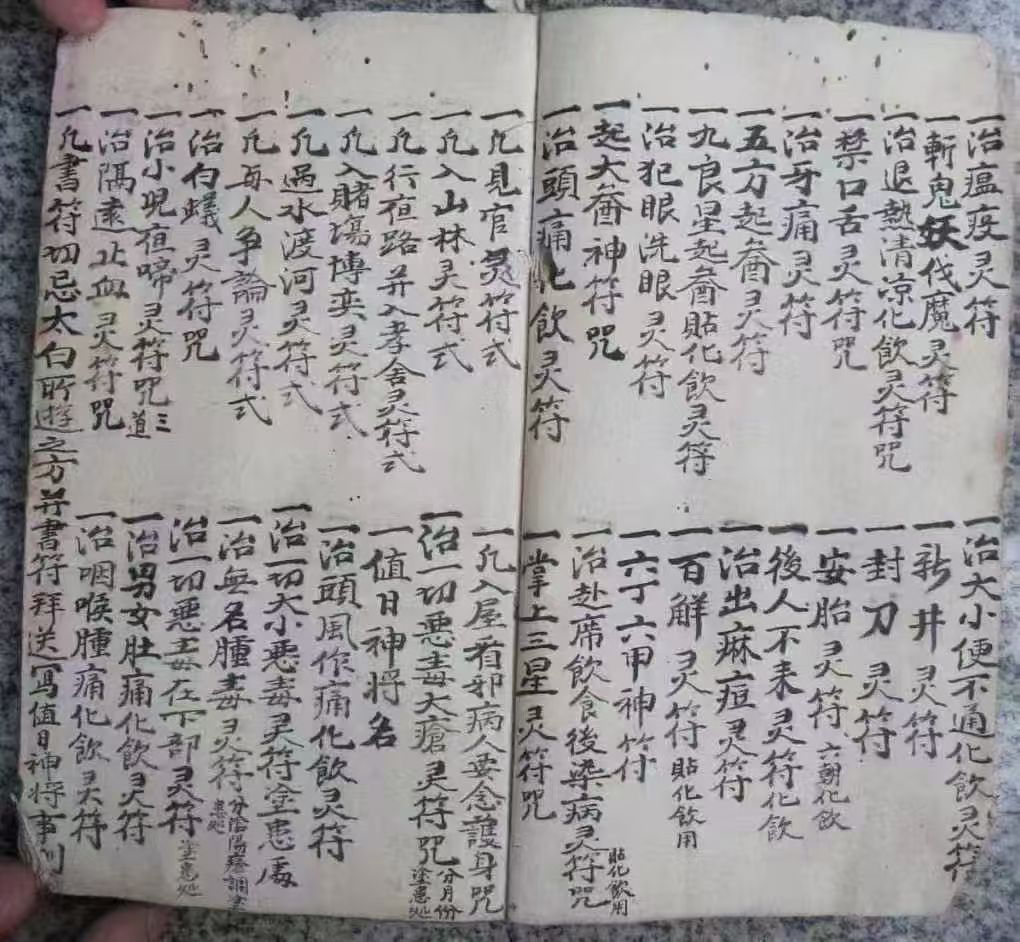 一治瘟疫灵符
一斬鬼妖伐魔灵符
一治退熱清涼化飲灵符咒
一禁口舌灵符咒
一治牙痛灵符
一五方起煞灵符
一九良星起煞貼化飲灵符
一治犯眼洗眼灵符
一起大煞神符咒
一治頭痛化飲灵符
一治大小便不通化飲灵符
一新井灵符
一封刀灵符
一安胎灵符 六朝化飲
一後人不来灵符化飲
一治出麻痘灵符
一百解灵符 貼化飲用
一六丁六甲神符
一治赴席飲食後染病灵符咒 貼化飲用
一掌上三星灵符咒
一凡見官灵符式
一凡入山林灵符式
一凡行夜路并入孝舍灵符式
一凡入賭場博奕灵符式
一凡過水渡河灵符式
一凡与人争論灵符式
一治白蟻灵符咒
一治小児夜啼灵符咒 三道
一治隔遠止血灵符咒
一凡入屋看邪病人要念護身咒
一治一切惡毒大瘡灵符咒 分月份塗患処
一值日神将名
一治頭風作痛化飲灵符
一治一切大小惡毒灵符塗患處
一治無名腫毒灵符 分陰陽 塗患処
治一切惡毒在下部灵符 塗患処
一治男女肚痛化飲灵符
一治咽喉腫痛化飲灵符
一凡書符切忌太白所遊之方并書符拜送寫值日神将事